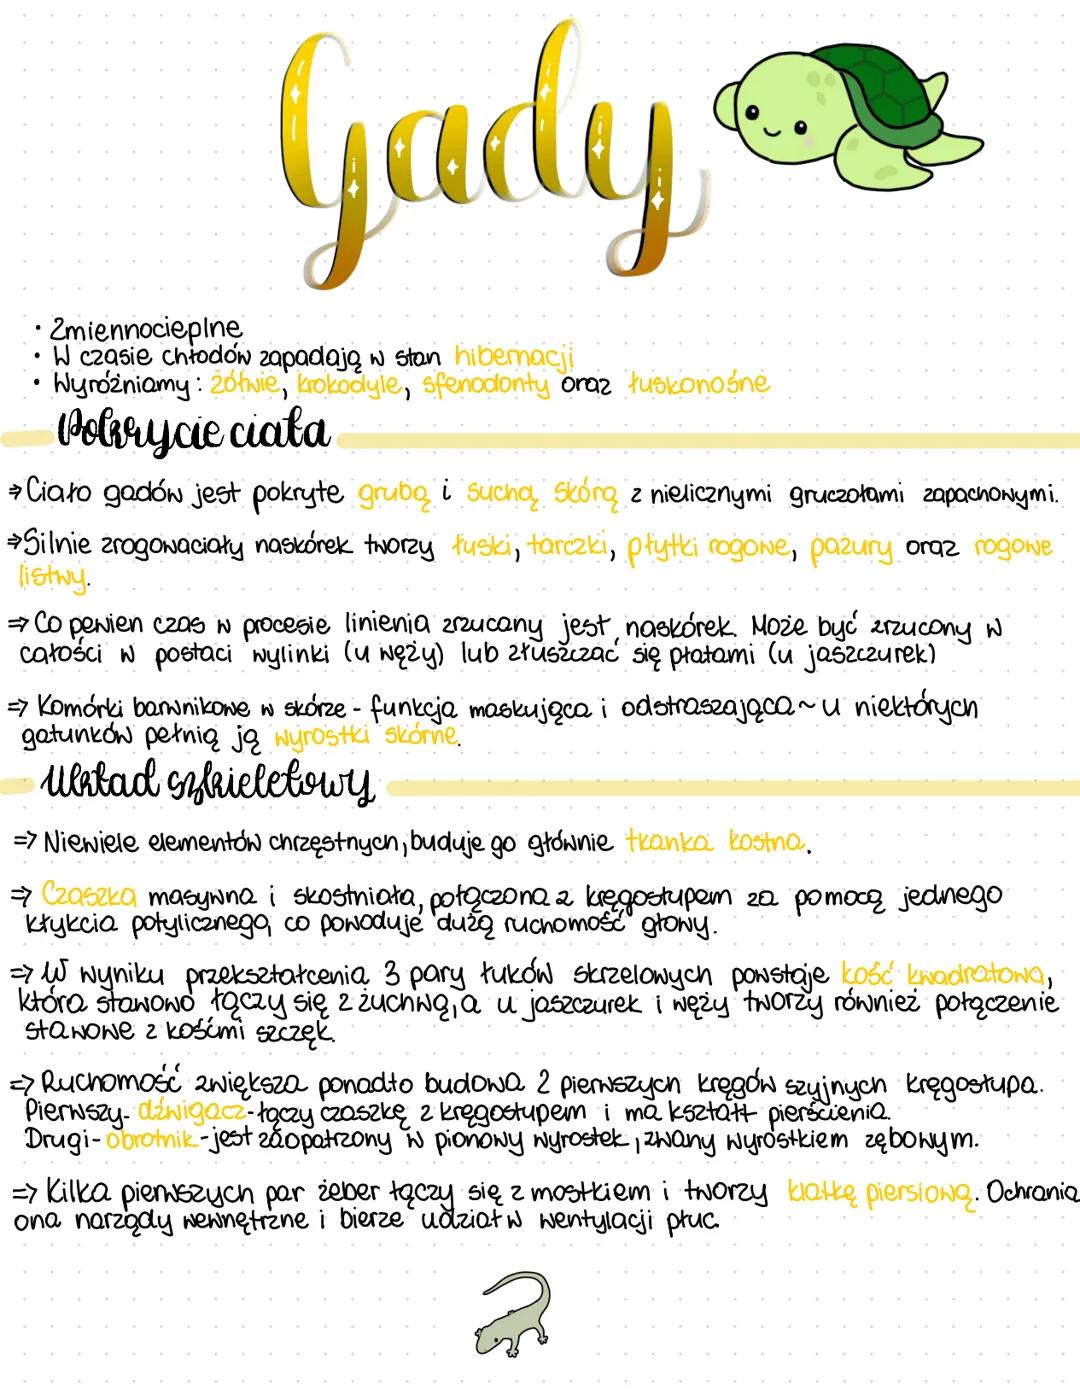 Gady
• Zmiennocieplne
• W czasie chłodów zapadają w stan hibernacji
• Wyróżniamy: żółwie, krokodyle, sfenodonty oraz łuskonośne
Pokrycie ciała
⇒ Ciało gadów jest pokryte grubą i suchą skórą z nielicznymi gruczołami zapachowymi.
⇒ Silnie zrogowaciały naskórek tworzy łuski, tarczki, płytki rogowe, pazury oraz rogowe
listwy.
⇒ Co pewien czas w procesie linienia zrzucany jest naskórek. Może być zrzucony w
całości w postaci wylinki (u węży) lub złuszczać się płatami (u jaszczurek)
⇒ Komórki barwnikowe w skórze - funkcja maskująca i odstraszająca ~ u niektórych
gatunków pełnią ją wyrostki skórne.
Układ szkieletowy
⇒ Niewiele elementów chrzęstnych, buduje go głównie tkanka kostna.
⇒ Czaszka masywna i skostniała, połączona z kręgosłupem za pomocą jednego
kłykcia potylicznego, co powoduje dużą ruchomość głowy.
⇒ W wyniku przekształcenia 3 pary łuków skrzelowych powstaje kość kwadratowa,
która stawowo łączy się z żuchwą, a u jaszczurek i węży tworzy również połączenie
stawowe z kośćmi szczęk.
⇒ Ruchomość zwiększa ponadto budowa 2 pierwszych kręgów szyjnych kręgosłupa.
Pierwszy - dźwigacz - łączy czaszkę z kręgosłupem i ma kształt pierścienia.
Drugi - obrotnik - jest zaopatrzony w pionowy wyrostek, zwany wyrostkiem zębowym.
⇒ Kilka pierwszych par żeber łączy się z mostkiem i tworzy klatkę piersiową. Ochrania
ona narządy wewnętrzne i bierze udział w wentylacji płuc.